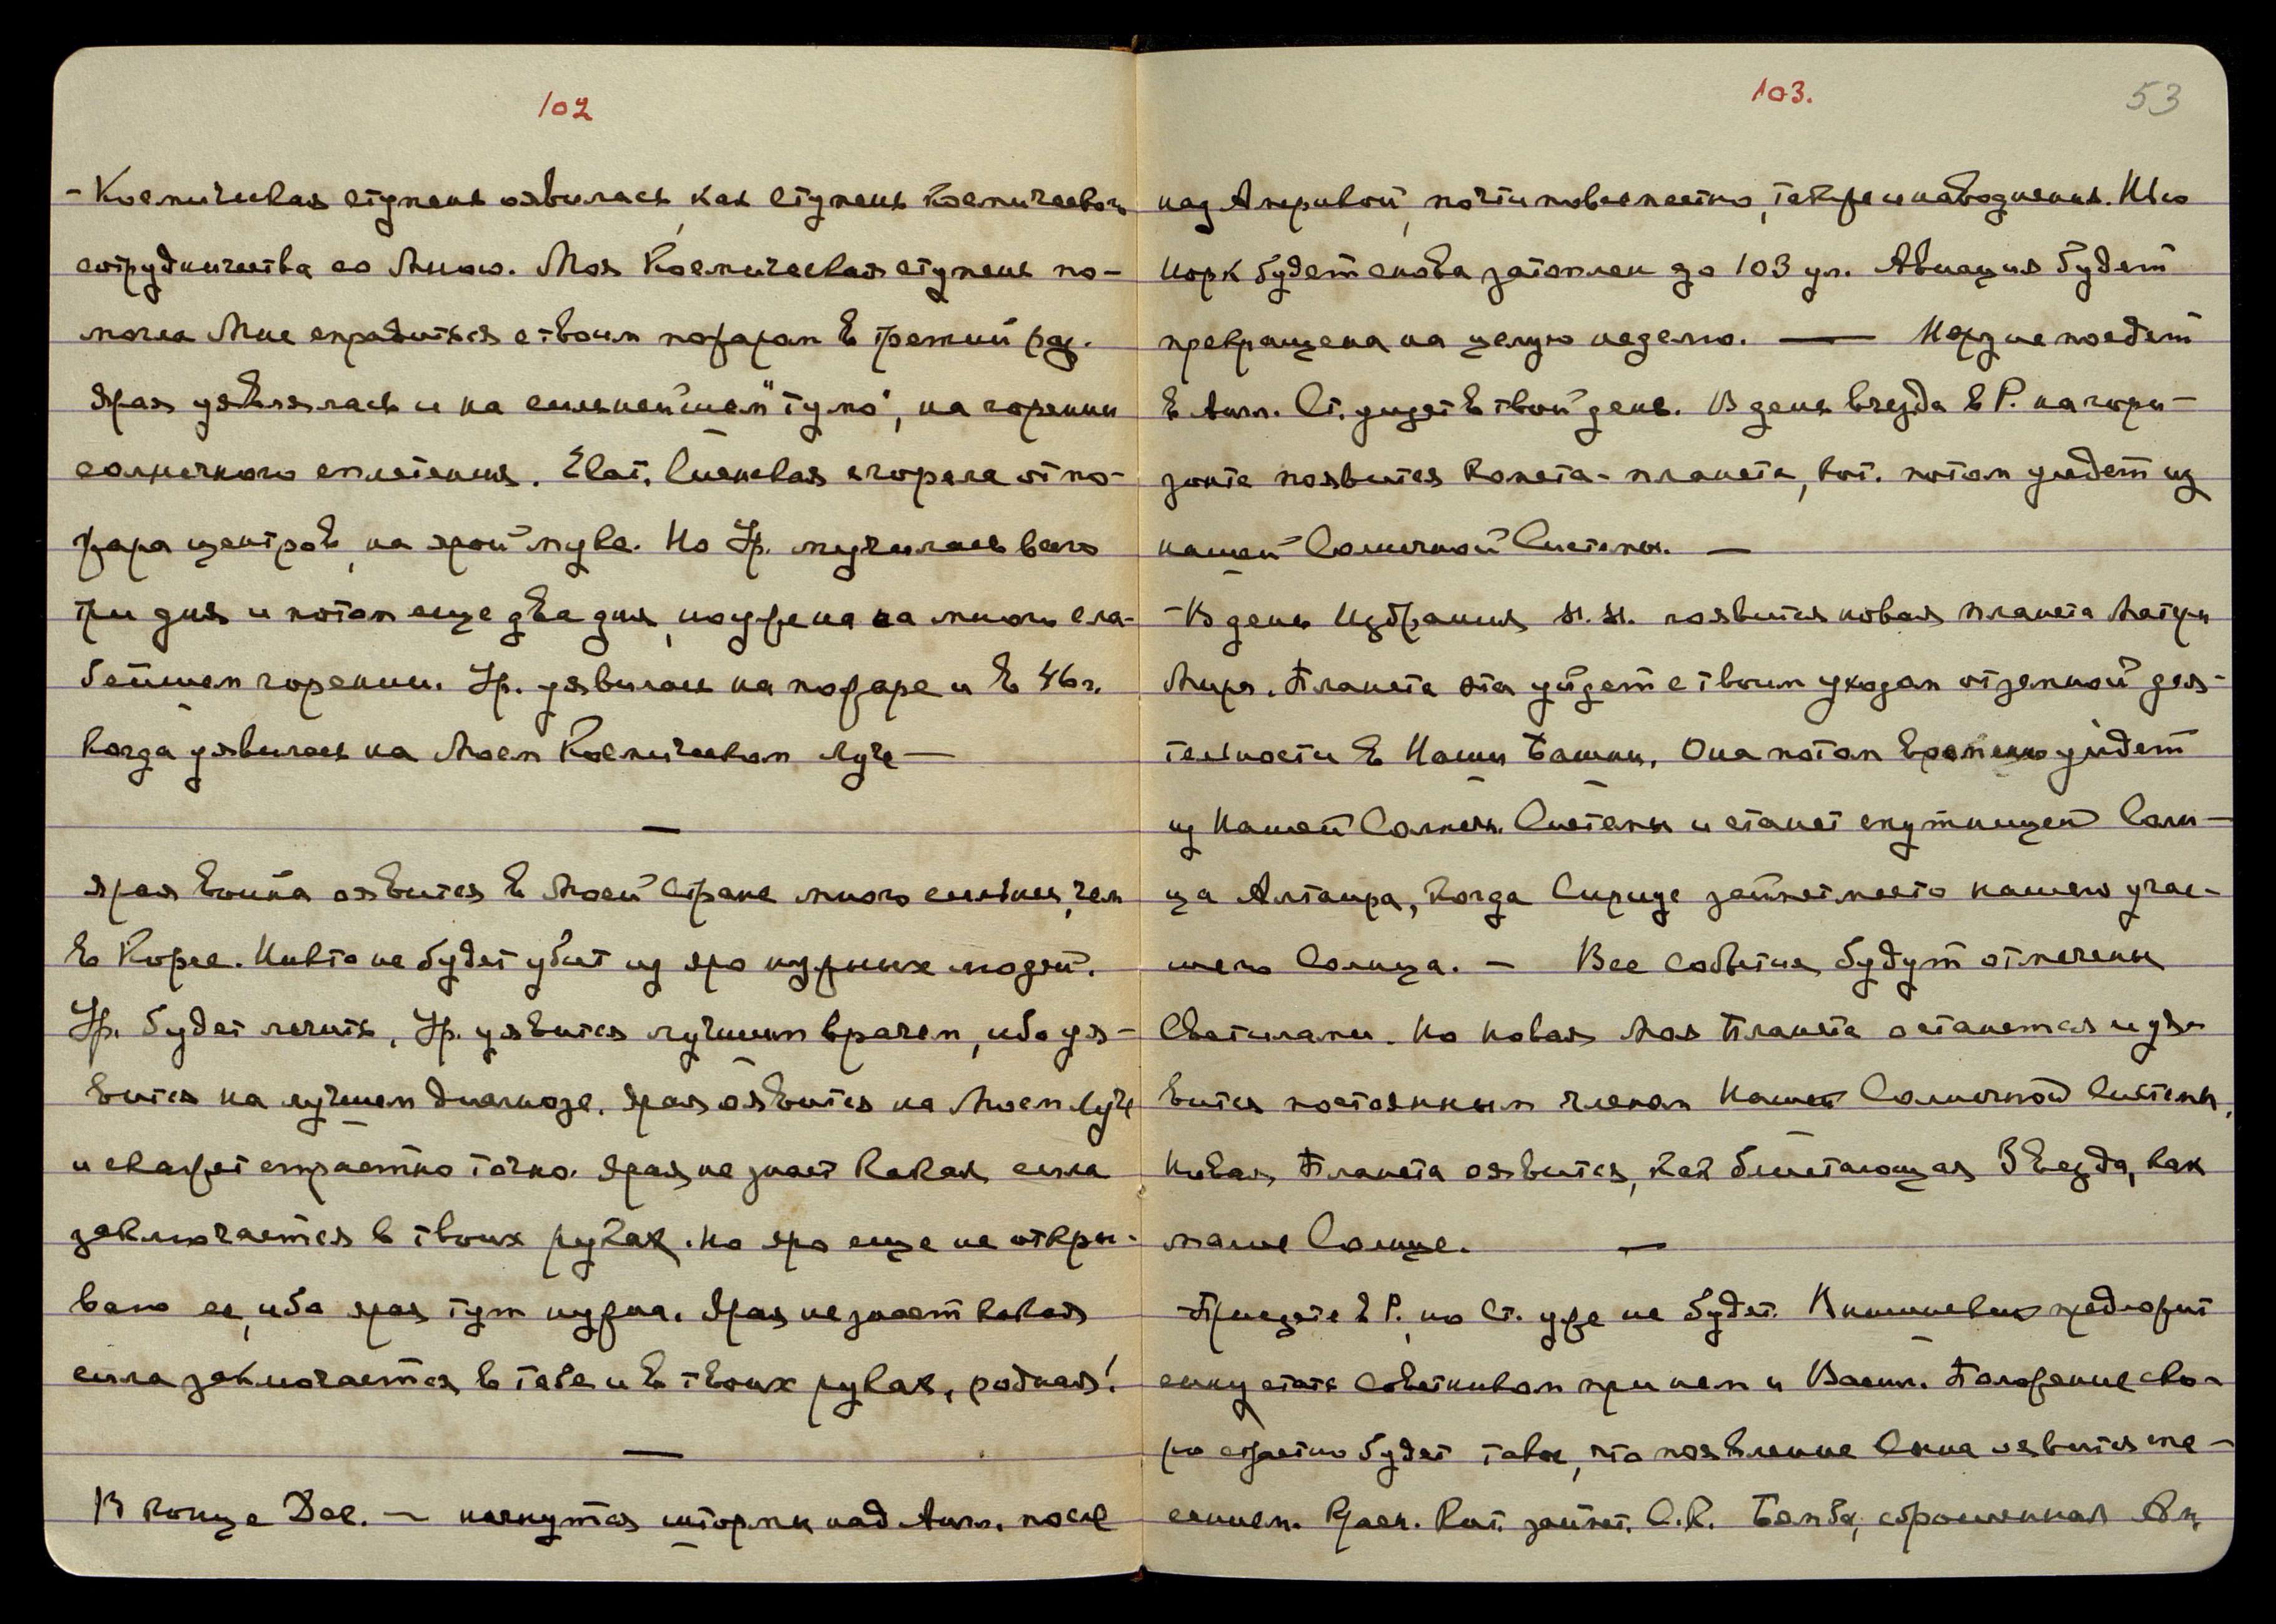 102
- Космическая ступень явилась, как ступень космического
сотрудничества со Мною. Моя Космическая ступень по-
могла Мне справиться с твоим пожаром в третий раз.
Ярая уявлялась и на сильнейшем "тумо", на горении
солнечного сплетения. Екат. Сиенская сгорела от по-
жара центров, на ярой муке. Но Ур. мучилась всего
три дня и потом еще два дня, но уже на много сла-
бейшем горении. Ур. уявилась на пожаре и в 46 г.
когда уявилась на Моем Космическом Луче —
—
Ярая война явится в Моей Стране много сильнее, чем
в Корее. Никто не будет убит из яро нужных людей.
Ур. будет лечить, Ур. уявится лучшим врачем, ибо уя-
вится на лучшем диагнозе. Ярая явится на Моем Луче
и скажет страстно точно. Ярая не знает какая сила
заключается в твоих руках. Но яро еще не откры-
ваю ее, ибо ярая тут нужна. Ярая не знает какая
сила заключается в тебе и в твоих руках, родная!
—
В конце Дек. — начнутся штормы над Англ. после
103.
53
над Америкой, почти повсеместно, также и наводнения. Нью
Иорк будет снова затоплен до 103 ул. Авиация будет
прекращена на целую неделю. — не поедет
в Англ. Ст. уйдет в твой день. В день въезда в Р. на гори-
зонте появится Комета-планета, кот. потом уйдет из
нашей Солнечной Системы. —
- В день Избрания появится новая планета Матери
Мира. Планета эта уйдет с твоим уходом от земной дея-
тельности в Наши Башни. Она потом временно уйдет
из Нашей Солнечн. Системы и станет спутницей Солн-
ца Альтаира, когда Сириус займет место нашего угас-
шего Солнца. — Все события будут отмечены
Светилами. Но Новая Моя Планета останется и уя-
вится постоянным членом Нашей Солнечной Системы,
Новая Планета явится, как блистающая Звезда, как
малое Солнце. —
Приедете в Р., но Ст. уже не будет. предложит
сыну стать Советником при нем и Положение ско-
ро страстно будет такое, что появление Сына явится спа-
сением. Красн. Кит. займет. С.К. Бомба, сброшенная